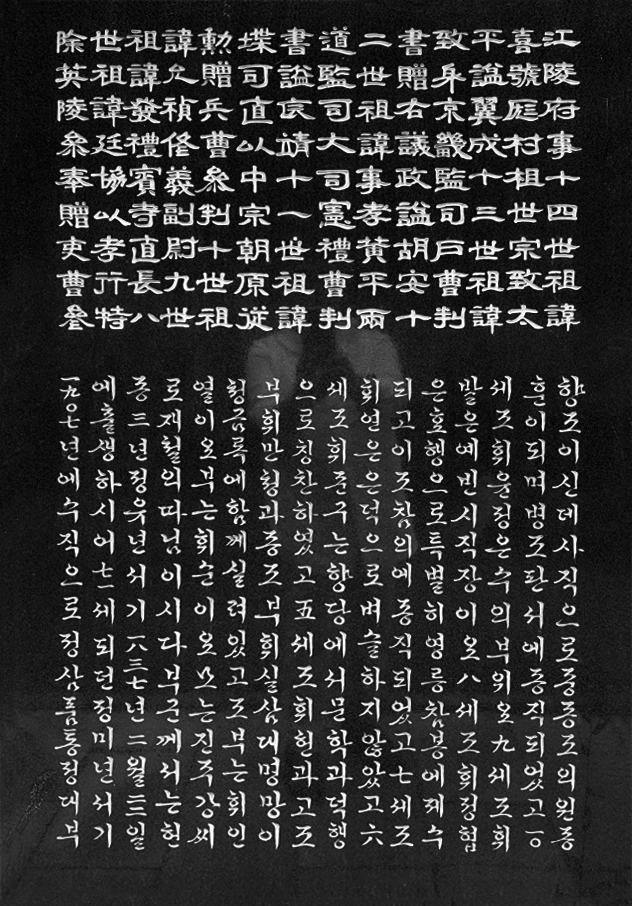 江陵府事十四世祖諱
喜號庭村祖世宗致太
平諡翼成十三世祖諱
致身京畿監司戶曹判
書贈右議政諡胡安十
二世祖諱事孝黃平兩
道監司大司憲禮曹判
書諡良靖十一世祖諱
堞司直以中宗朝原從
勳贈兵曹參判十世祖
諱允禎修義副尉九世
祖諱發禮賓寺直長八
世祖諱廷協以孝行特
除英陵參奉贈吏曹參
향조이신데사직으로중종조의원종
훈이되며병조판서에증직되었고一○
세조휘윤정은수의부위오九세조휘
발은예빈시직장이오八세조휘정협
은효행으로특별히영릉참봉에제수
되고이조참의에증직되었고七세조
휘연은은덕으로벼슬하지않았고六
세조휘준구는향당에서문학과덕행
으로칭찬하였고五세조휘헌과고조
부휘만청과증조부휘실삼대명망이
청금록에함께실려있고조부는휘인
열이오부는휘순이오모는진주강씨
로재철의따님이시다부군께서는헌
종三년정유년서기一八三七년二월二三일
에출생하시어七一세되던정미년서기
一九○七년에수직으로정삼품통정대부